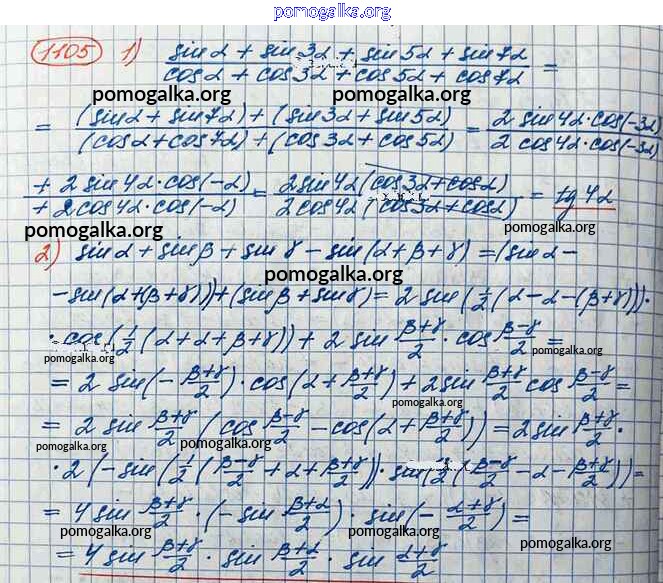 pomogalka.org
1105 1) (sin α + sin 3α + sin 5α + sin 7α)/(cos α + cos 3α + cos 5α + cos 7α) =
pomogalka.org pomogalka.org
= ((sin α + sin 7α) + (sin 3α + sin 5α))/((cos α + cos 7α) + (cos 3α + cos 5α)) = (2 sin 4α · cos(-3α))/(2 cos 4α · cos(-3α))
(+ 2 sin 4α · cos(-α))/(+ 2 cos 4α · cos(-α)) = (2 sin 4α (cos 3α + cos α))/(2 cos 4α (cos 3α + cos α)) = tg 4α
pomogalka.org
2) sin α + sin β + sin γ - sin (α + β + γ) = (sin α -
pomogalka.org
- sin (α + (β + γ))) + (sin β + sin γ) = 2 sin (1/2 (α - α - (β + γ))) ·
· cos (1/2 (α + α + β + γ)) + 2 sin (β+γ)/2 · cos (β-γ)/2 =
pomogalka.org pomogalka.org
= 2 sin (- (β+γ)/2) · cos (α + (β+γ)/2) + 2 sin (β+γ)/2 cos (β-γ)/2 =
pomogalka.org
= 2 sin (β+γ)/2 (cos (β-γ)/2 - cos (α + (β+γ)/2)) = 2 sin (β+γ)/2 ·
pomogalka.org
· 2 (- sin (1/2 ((β-γ)/2 + α + (β+γ)/2)) · sin (1/2 ((β-γ)/2 - α - (β+γ)/2)) =
pomogalka.org
= 4 sin (β+γ)/2 · (- sin (β+α)/2) · sin (- (α+γ)/2) =
pomogalka.org pomogalka.org
= 4 sin (β+γ)/2 · sin (β+α)/2 · sin (α+γ)/2